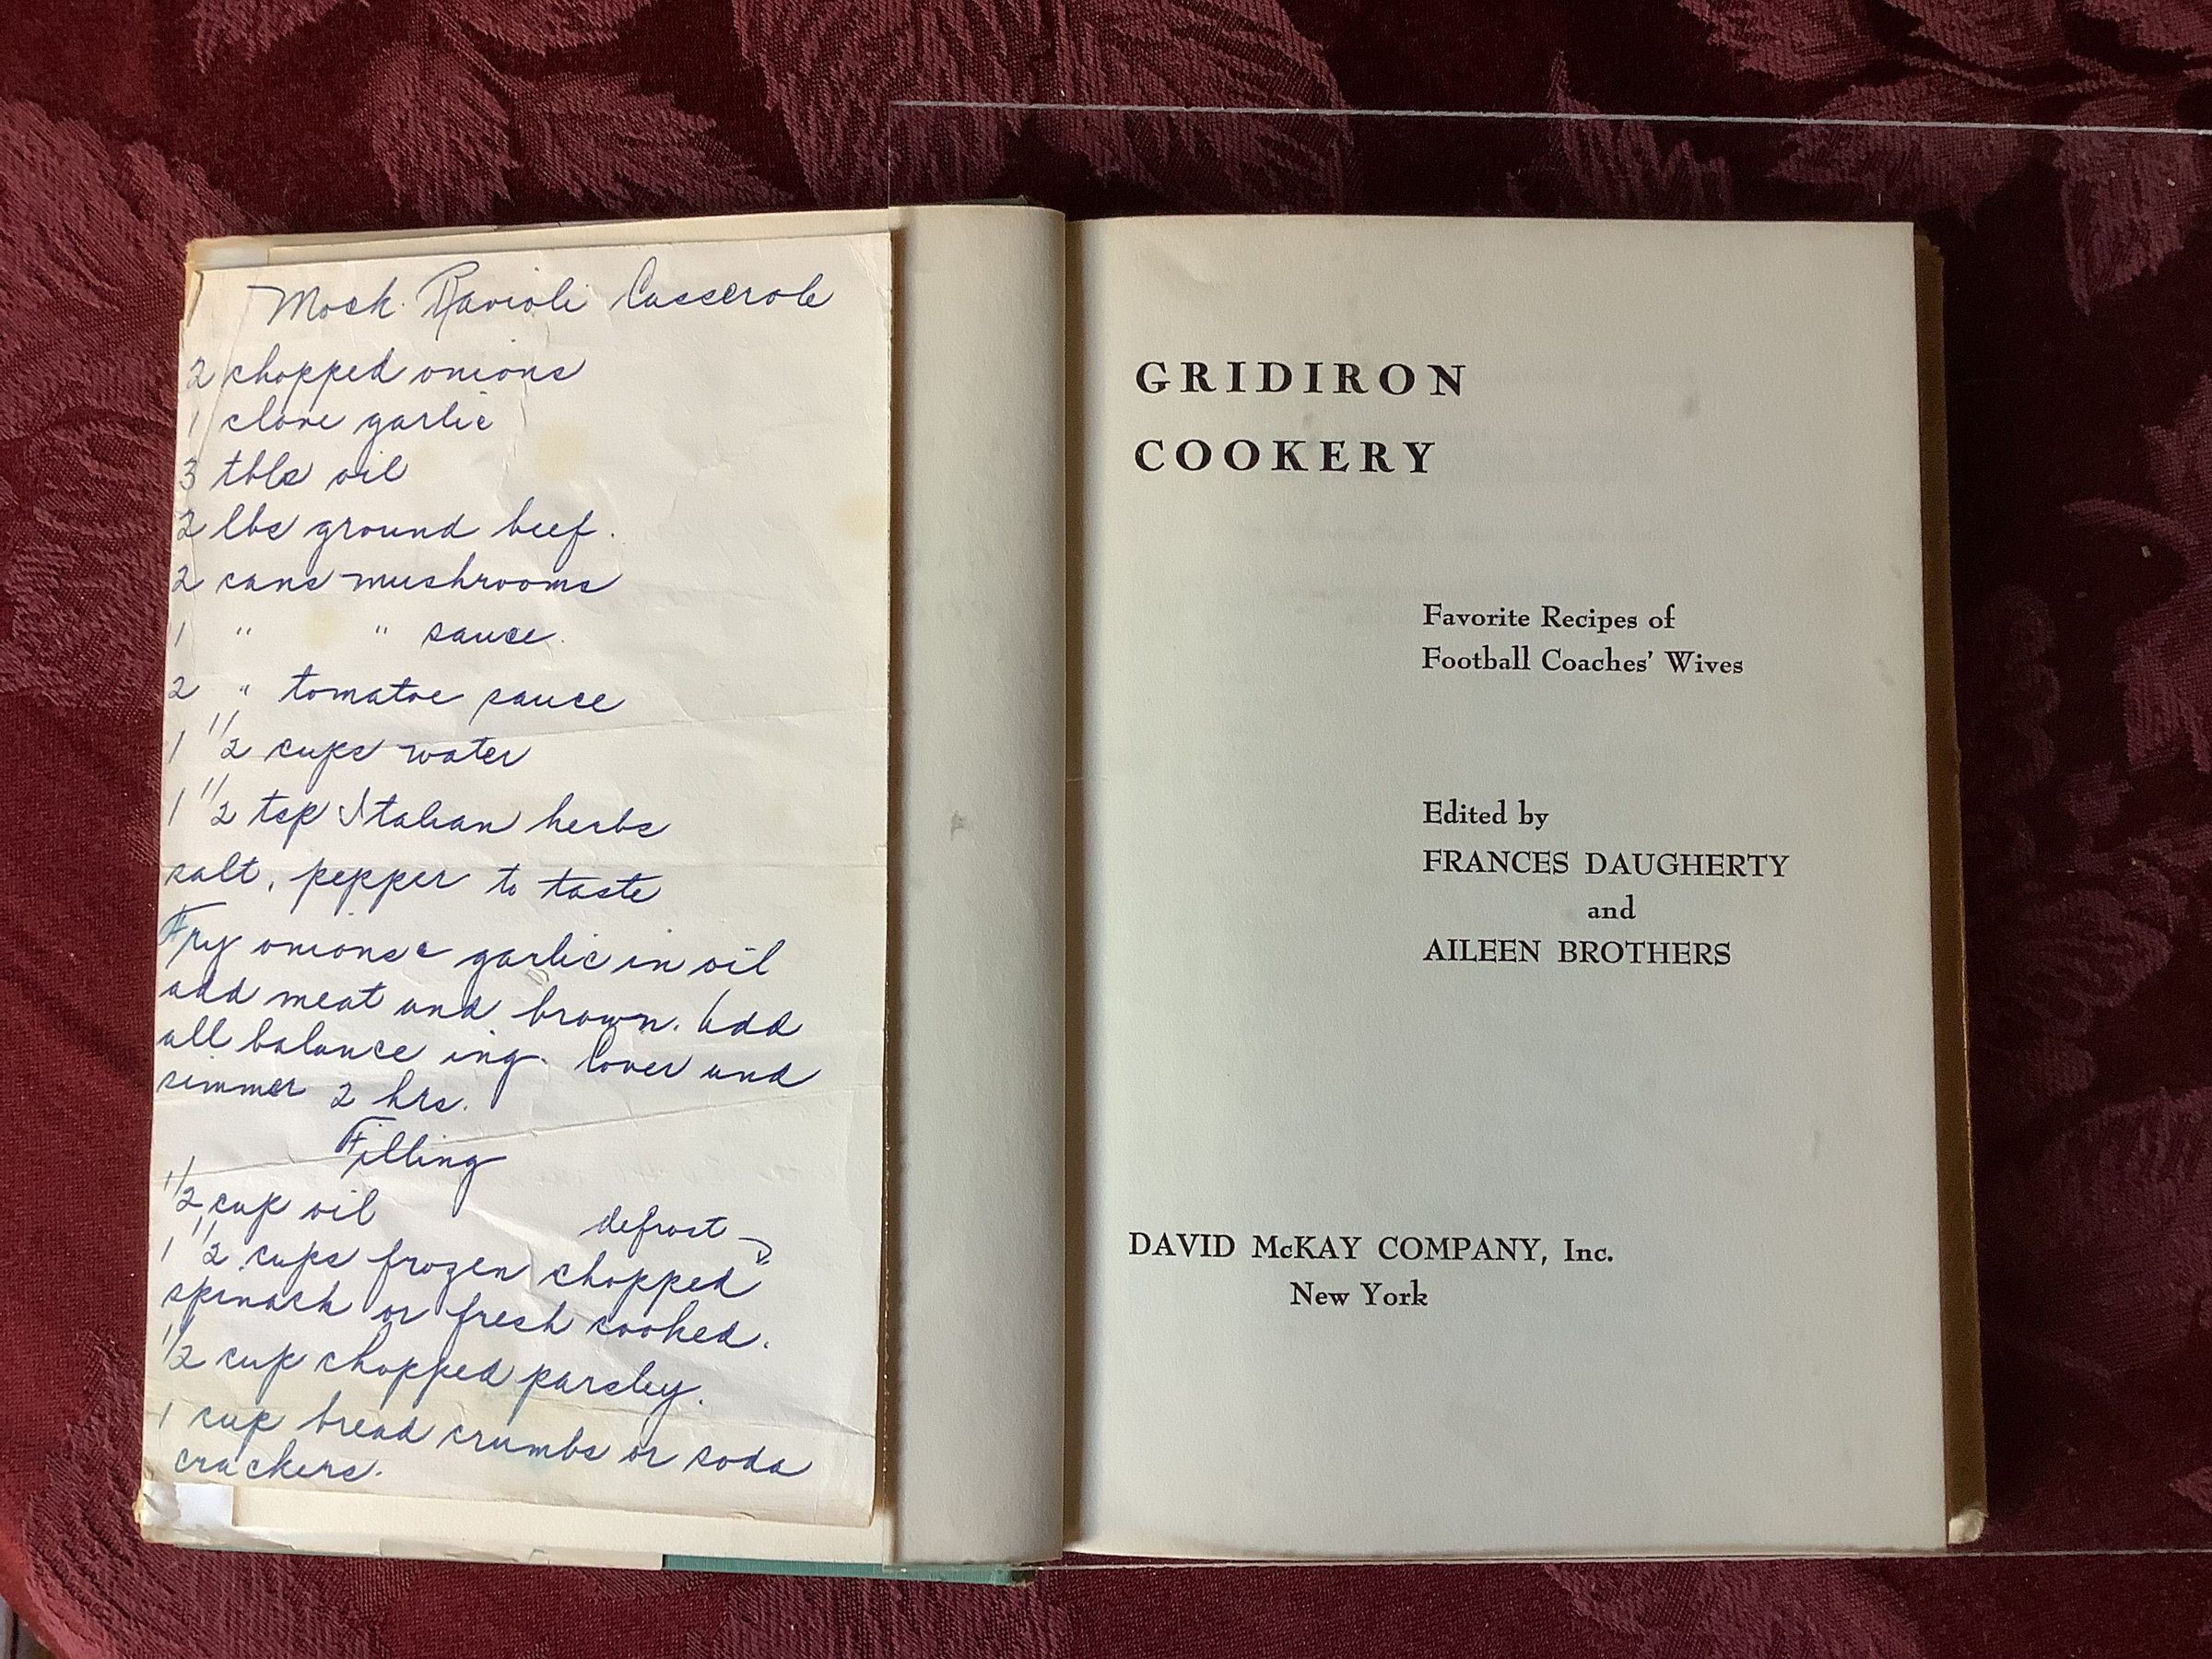 Mock Ravioli Casserole
2 chopped onions
1 clove garlic
3 tbls oil
2 lbs ground beef.
2 cans mushrooms
1 " " sauce.
2 " tomatoe sauce
1 1/2 cups water
1 1/2 tsp Italian herbs
salt, pepper to taste
Fry onions & garlic in oil
add meat and brown. Add
all balance ing. Cover and
simmer 2 hrs.
Filling
1/2 cup oil
defrost
1 1/2 cups frozen chopped
spinach or fresh cooked.
1/2 cup chopped parsley.
1 cup bread crumbs or soda
crackers.
GRIDIRON
COOKERY
Favorite Recipes of
Football Coaches' Wives
Edited by
FRANCES DAUGHERTY
and
AILEEN BROTHERS
DAVID McKAY COMPANY, Inc.
New York